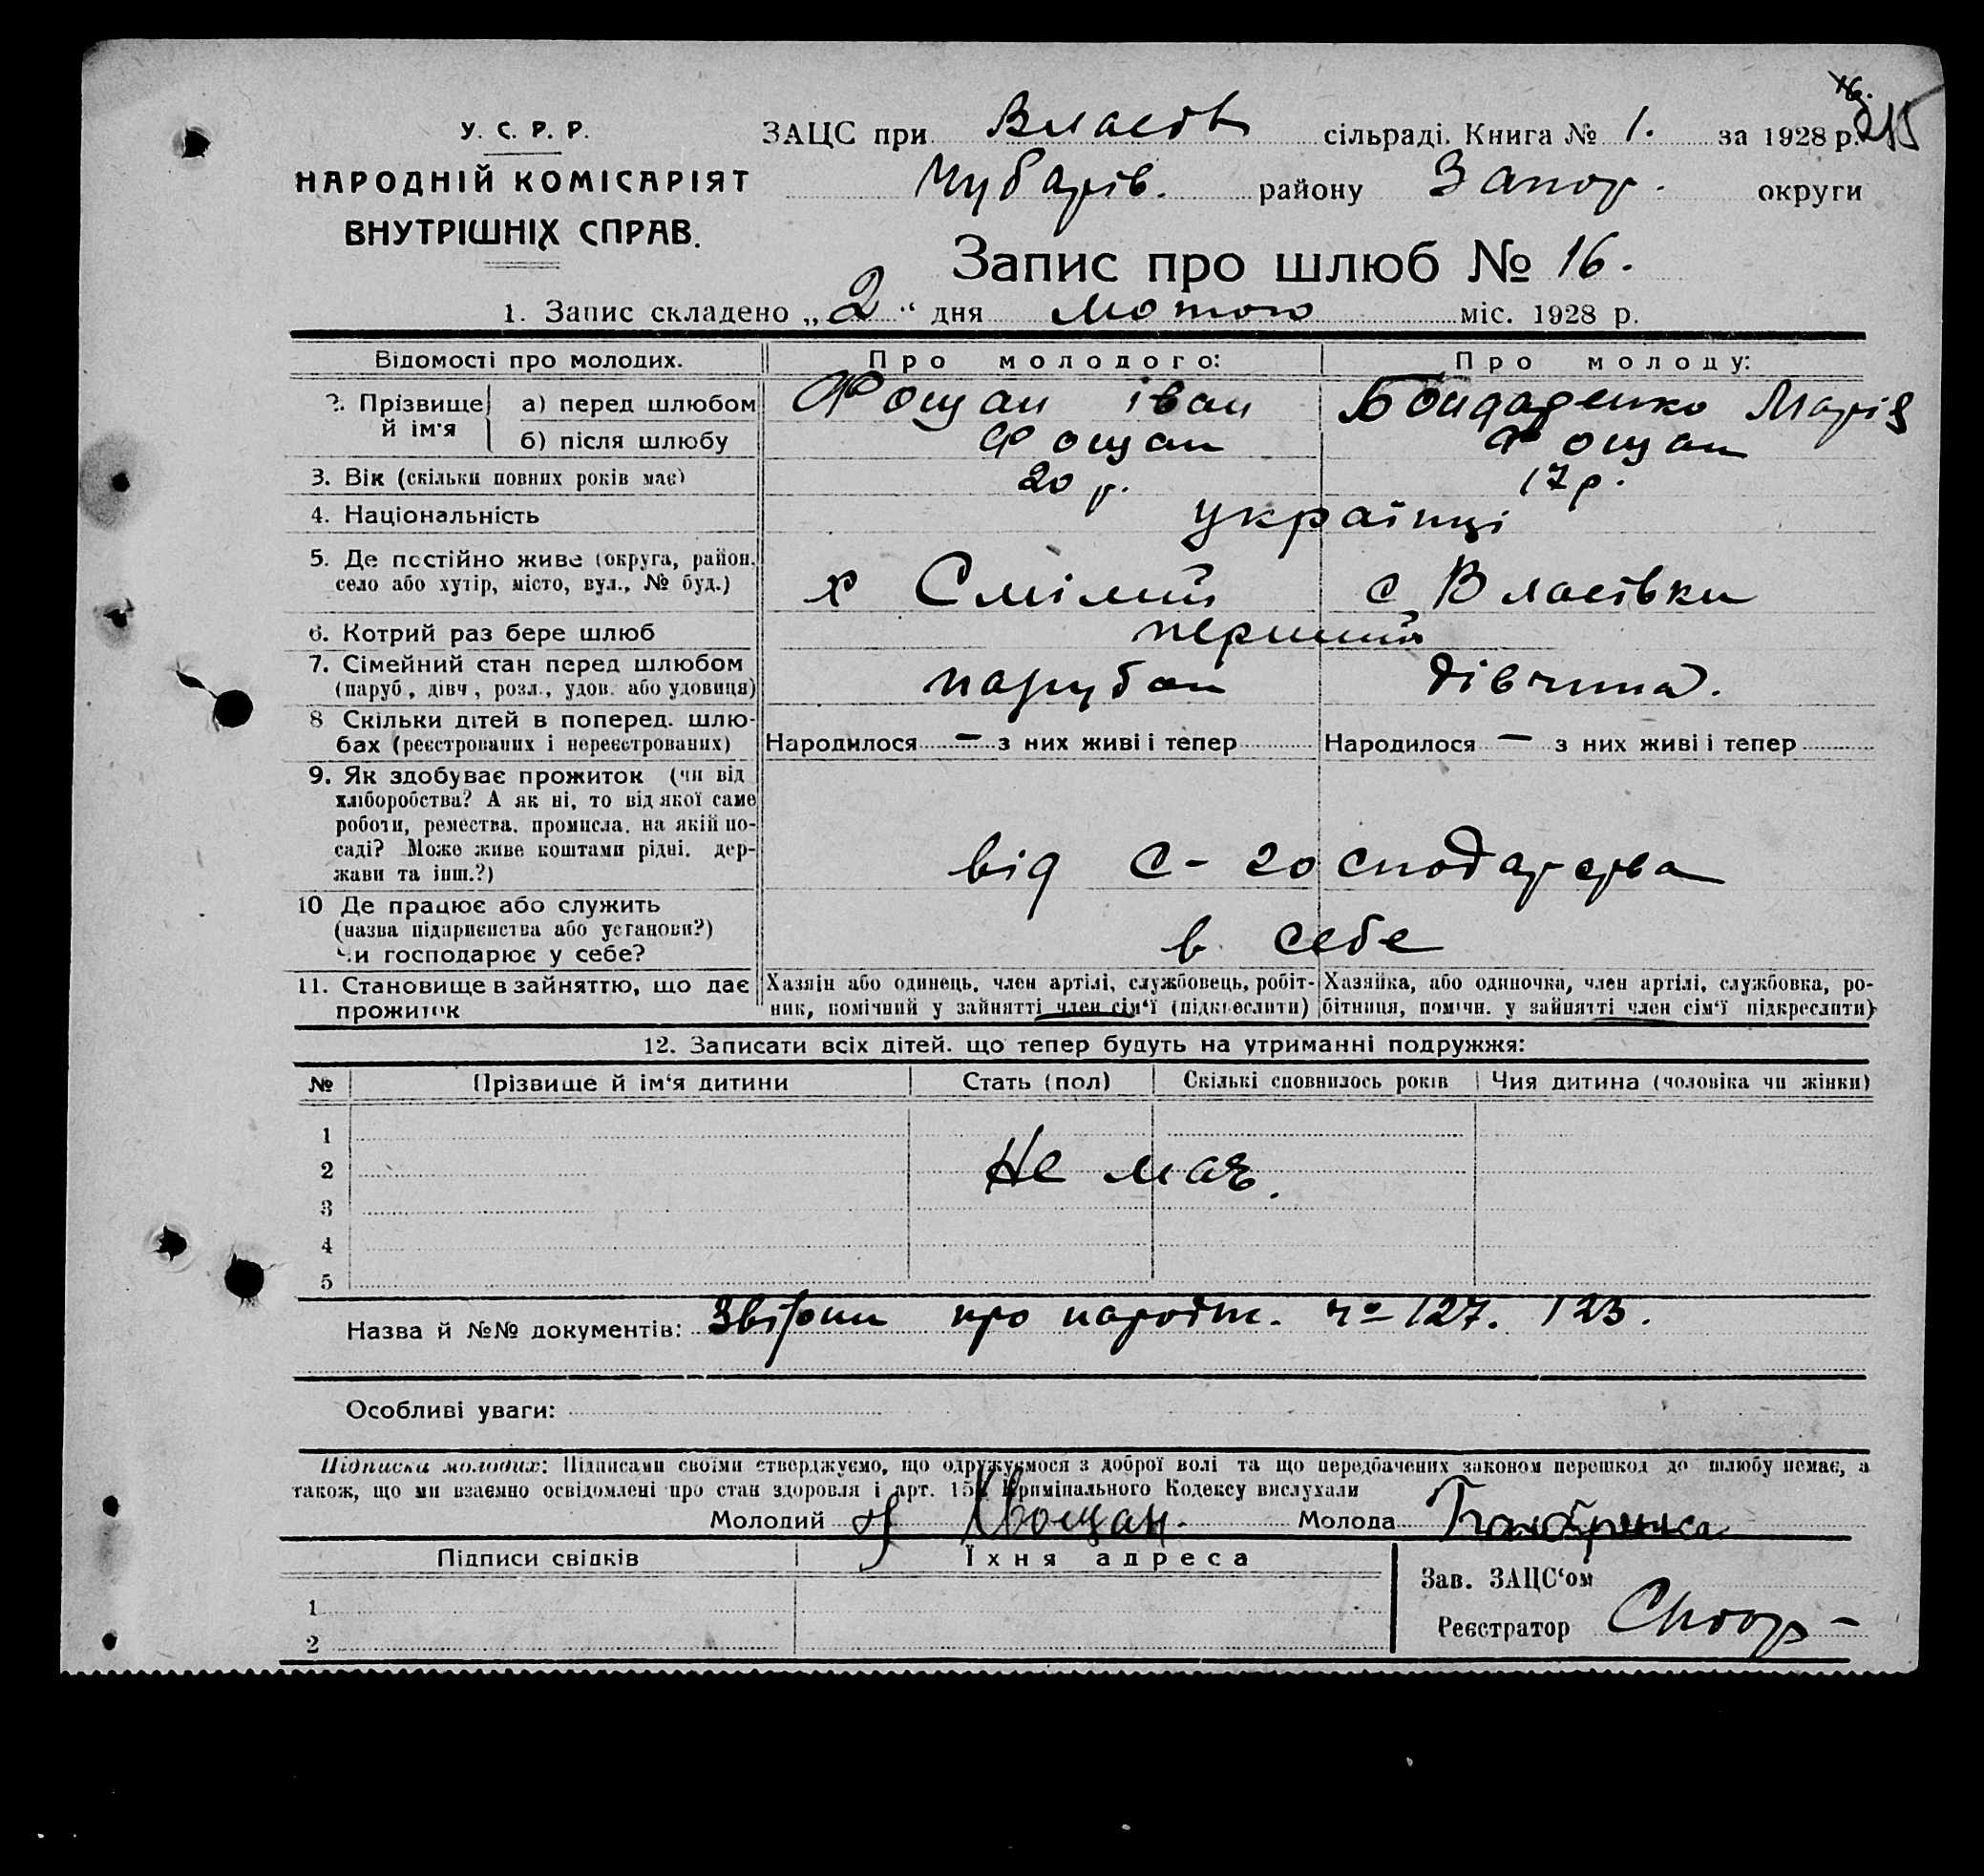 У. С. Р. Р.
НАРОДНІЙ КОМІСАРІЯТ
ВНУТРІШНІХ СПРАВ.
16.
215
ЗАЦС при Власів сільраді. Книга № 1. за 1928 р.
Чубарів. району Запор. округи
Запис про шлюб № 16.
1. Запис складено „ 2 “ дня лютого міс. 1928 р.
Відомості про молодих. Про молодого: Про молоду:
2. Прізвище й ім'я а) перед шлюбом Фощан іван Бондаренко Марія
б) після шлюбу Фощан Фощан
3. Вік (скільки повних років має) 20 р. 17 р.
4. Національність українці
5. Де постійно живе (округа, район, село або хутір, місто, вул., № буд.) х Смілий с. Власівки
6. Котрий раз бере шлюб перший
7. Сімейний стан перед шлюбом (паруб., дівч., розл., удов. або удовиця) парубок дівчина.
8 Скільки дітей в поперед. шлю-
бах (реєстрованих і нереєстрованих) Народилося — з них живі і тепер Народилося — з них живі і тепер
9. Як здобуває прожиток (чи від
хліборобства? А як ні, то від якої саме
роботи, ремества, промисла, на якій по-
саді? Може живе коштами рідні, дер-
жави та інш.?) від с-господарства
10 Де працює або служить
(назва підприєнства або установи?)
Чи господарює у себе? в себе
11. Становище в зайняттю, що дає прожиток
Хазяїн або одинець, член артілі, службовець, робіт-
ник, помічний у зайнятті член сім'ї (підкреслити)
Хазяйка, або одиночка, член артілі, службовка, ро-
бітниця, помічн. у зайнятті член сім'ї підкреслити)
12. Записати всіх дітей, що тепер будуть на утриманні подружжя:
№ Прізвище й ім'я дитини Стать (пол) Скількі сповнилось років Чия дитина (чоловіка чи жінки)
1
2 Не має.
3
4
5
Назва й №№ документів: про народж. ч= 127. 123.
Особливі уваги:
Підписка молодих: Підписами своїми стверджуємо, що одружуємося з доброї волі та що передбачених законом перешкод до шлюбу немає, а
також, що ми взаємно освідомлені про стан здоровля і арт. 15 Кримінального Кодексу вислухали
Молодий Фощан. Молода
Підписи свідків Їхня адреса
Зав. ЗАЦС'ом
1
Реєстратор
2